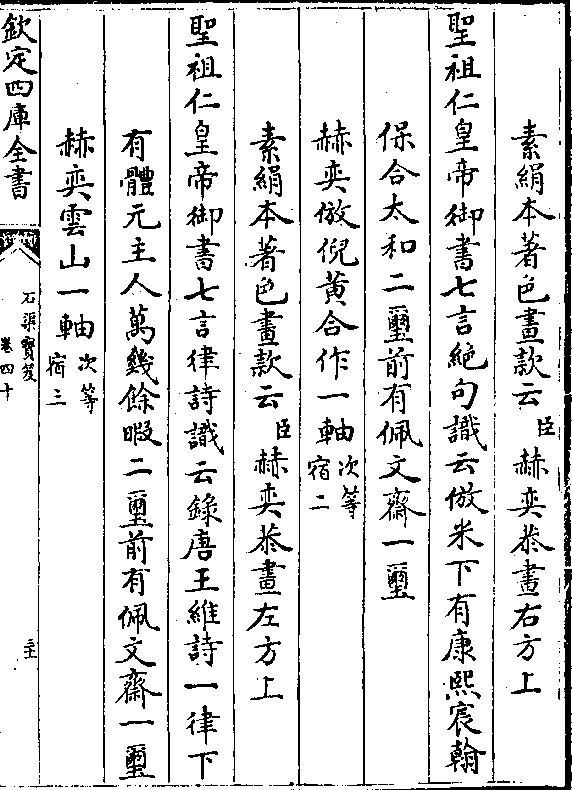 素絹本著色畫款云臣赫奕恭畫右方上
聖祖仁皇帝御書七言絕句識云倣米下有康熙宸翰
保合太和二璽前有佩文齋一璽
赫奕倣倪黃合作一軸次等宿二
素絹本著色畫款云臣赫奕恭畫左方上
聖祖仁皇帝御書七言律詩識云錄唐王維詩一律下
有體元主人萬幾餘暇二璽前有佩文齋一璽
赫奕雲山一軸次等宿三
欽定四庫全書
石渠寶笈
卷四十